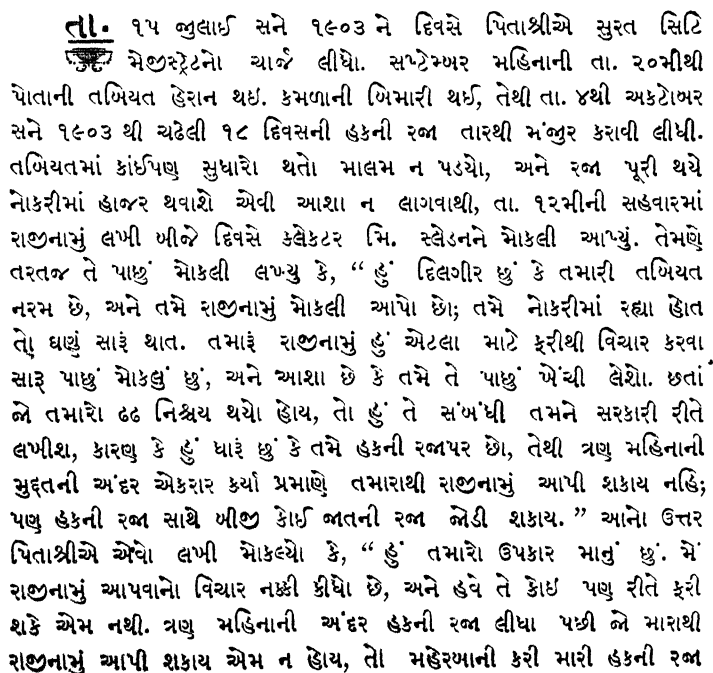 તા. ૧૫ જુલાઈ સને ૧૯૦૩ ને દિવસે પિતાશ્રીએ સુરત સિટિ
મેજીસ્ટ્રેટનો ચાર્જ લીધો. સપ્ટેમ્બર મહિનાની તા. ૨૦મીથી
પોતાની તબિયત હેરાન થઇ. કમળાની બિમારી થઈ, તેથી તા. ૪થી અકટોબર
સને ૧૯૦૩ થી ચઢેલી ૧૮ દિવસની હકની રજા તારથી મંજુર કરાવી લીધી.
તબિયતમાં કાંઈપણ સુધારો થતો માલમ ન પડયો, અને રજા પૂરી થયે
નોકરીમાં હાજર થવાશે એવી આશા ન લાગવાથી, તા. ૧૨મીની સહવારમાં
રાજીનામું લખી બીજે દિવસે ક્લેકટર મિ. સ્લેડનને મોકલી આપ્યું. તેમણે
તરતજ તે પાછું મોકલી લખ્યુ કે, “ હું દિલગીર છું કે તમારી તબિયત
નરમ છે, અને તમે રાજીનામું મોકલી આપો છો; તમે નોકરીમાં રહ્યા હોત
તો ઘણું સારૂં થાત. તમારૂં રાજીનામું હું એટલા માટે ફરીથી વિચાર કરવા
સારૂ પાછું મોકલું છું, અને આશા છે કે તમે તે પાછું ખેંચી લેશો. છતાં
જો તમારો દ્દઢ નિશ્ચય થયો હોય, તો હું તે સંબંધી તમને સરકારી રીતે
લખીશ, કારણ કે હું ધારૂં છું કે તમે હકની રજાપર છો, તેથી ત્રણ મહિનાની
મુદ્દતની અંદર એકરાર કર્યા પ્રમાણે તમારાથી રાજીનામું આપી શકાય નહિ;
પણ હકની રજા સાથે બીજી કોઈ જાતની રજા જોડી શકાય. ” આનો ઉત્તર
પિતાશ્રીએ એવો લખી મોકલ્યો કે, “ હું તમારો ઉપકાર માનું છું. મેં
રાજીનામું આપવાનો વિચાર નક્કી કીધો છે, અને હવે તે કોઇ પણ રીતે ફરી
શકે એમ નથી. ત્રણ મહિનાની અંદર હકની રજા લીધા પછી જો મારાથી
રાજીનામું આપી શકાય એમ ન હોય, તો મહેરબાની કરી મારી હકની રજા